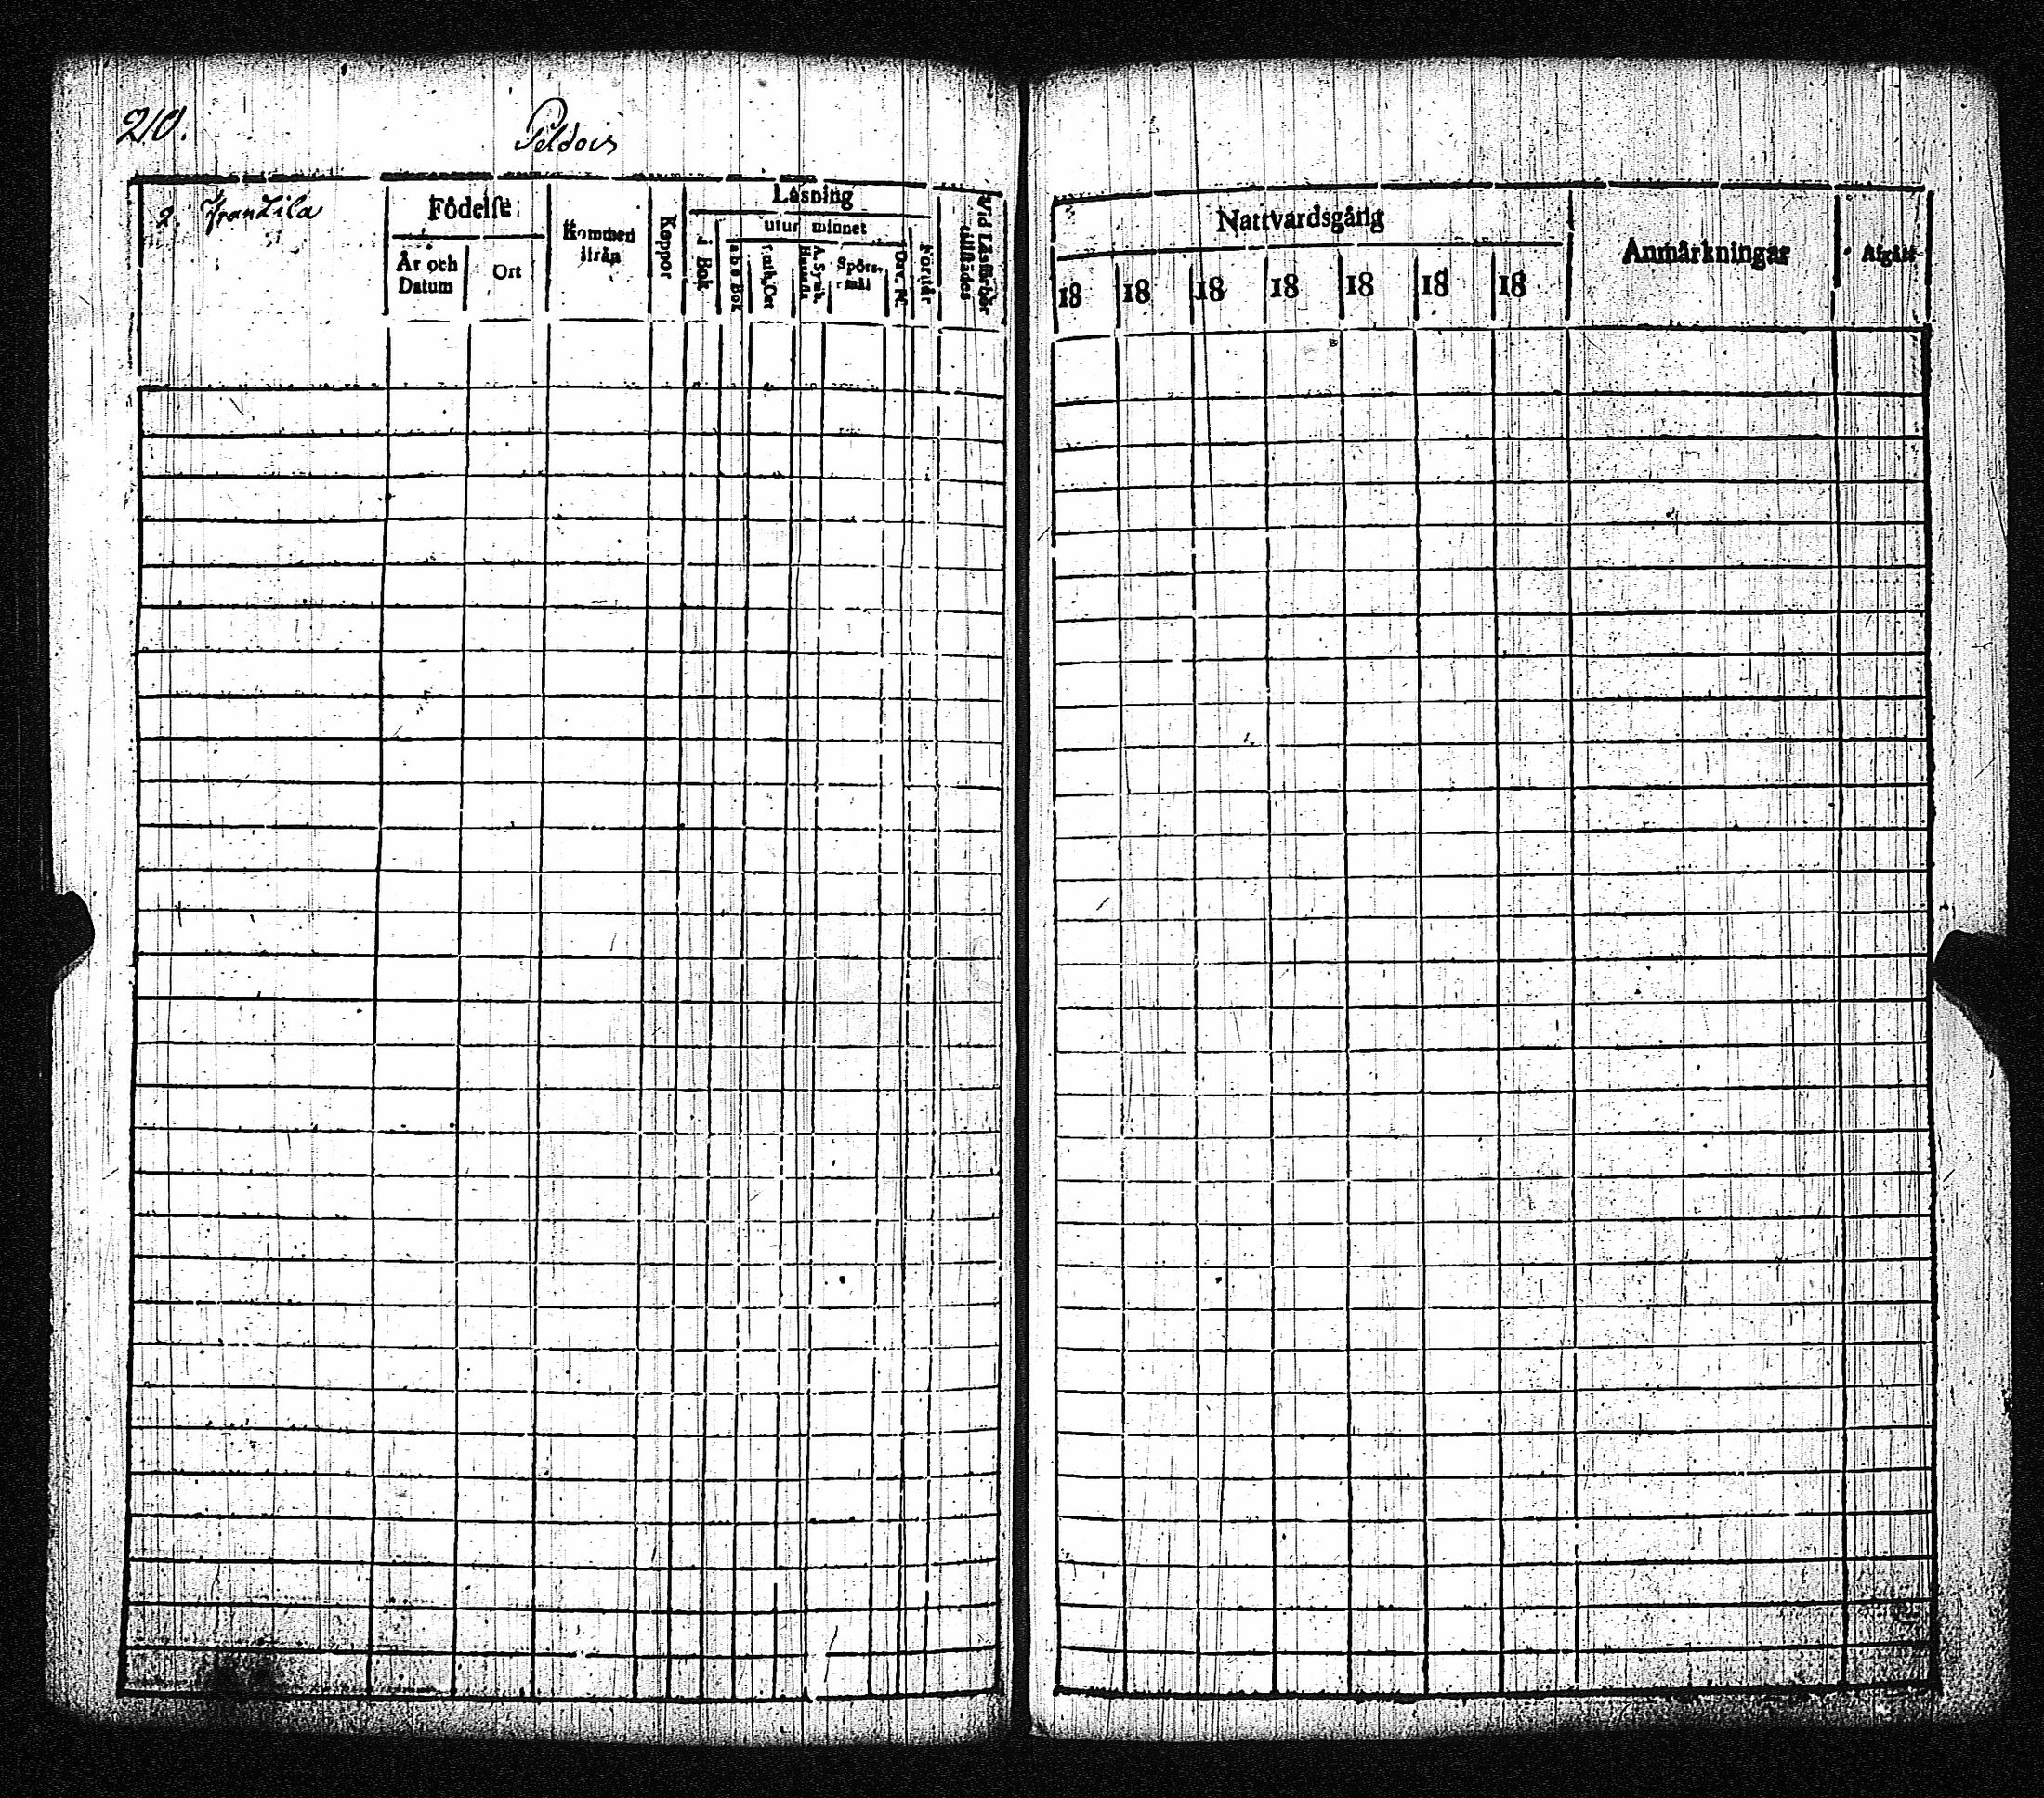 210.
Peldois
2. Franzila
Födelse
År och Datum
Ort
Kommen ifrån
Koppor
Läsning
i Bok
utur minnet
a b c Bok
A. Symb.
Spörs-mål
Dav. Ps.
Förstår
Vid Läsförhör tillstädes
Nattvardsgång
18 18 18 18 18 18 18
Anmärkningar
Afgått